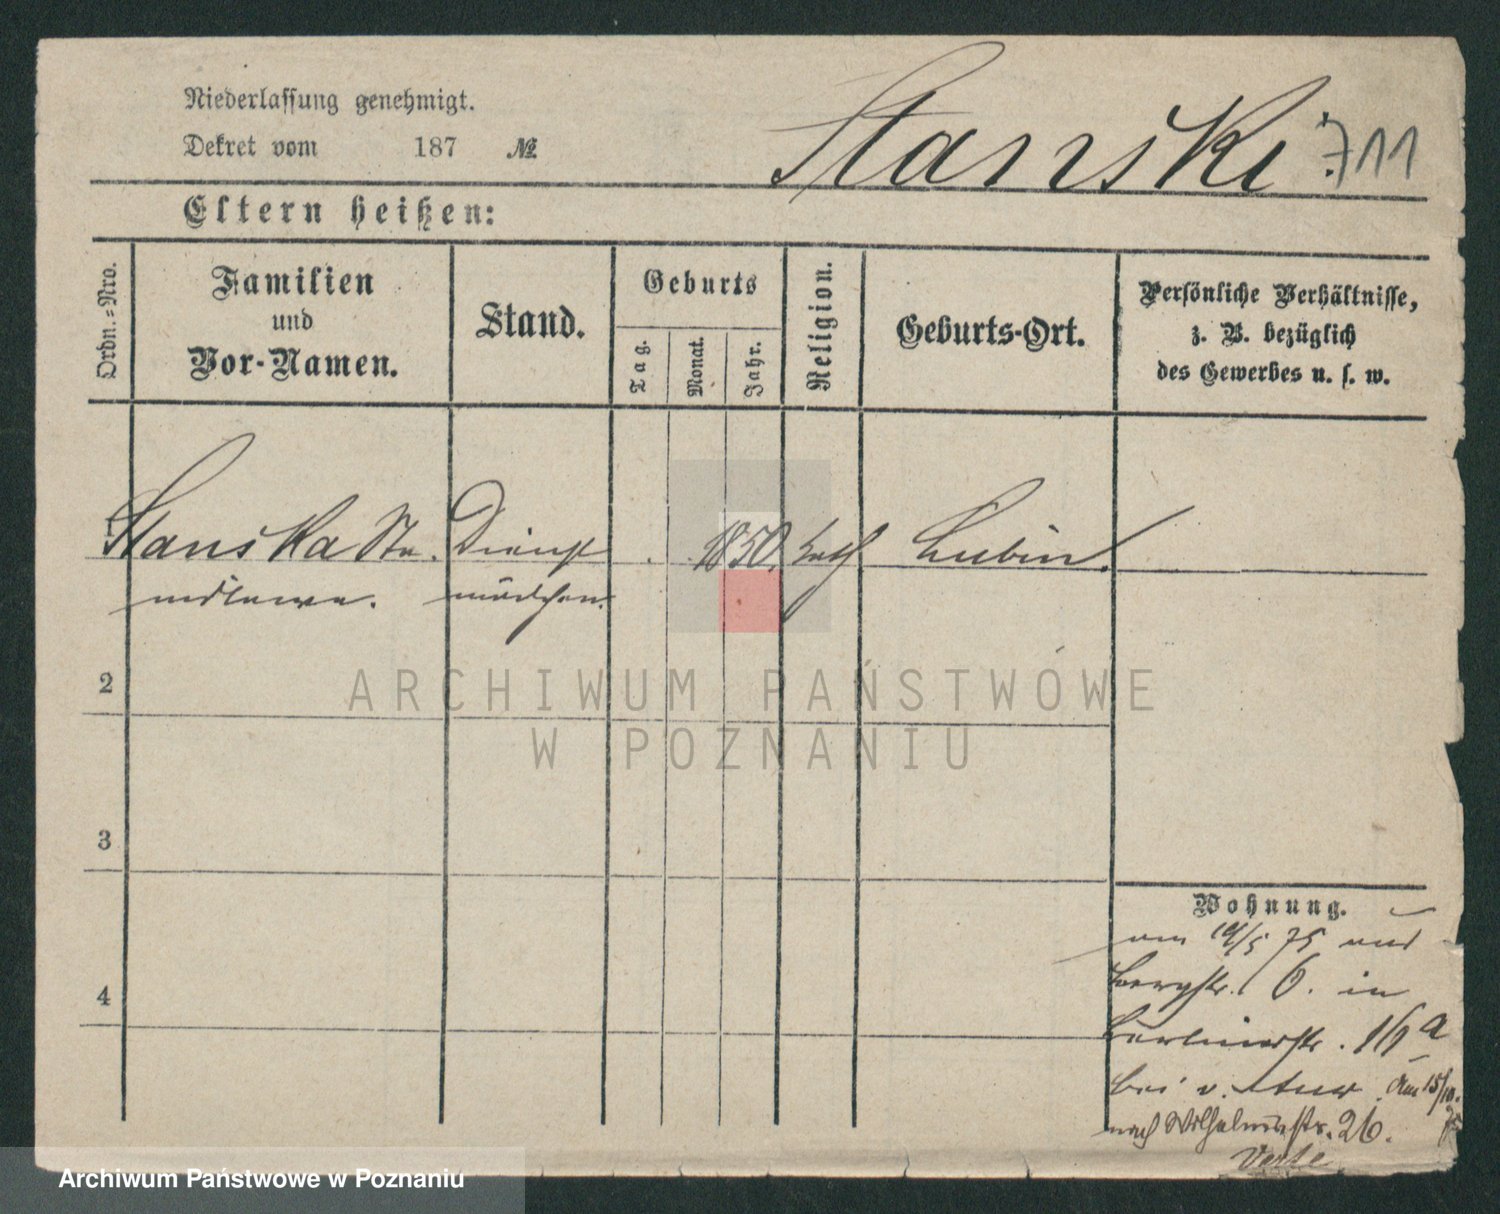 Niederlassung genehmigt.
Dekret vom 187 №
Stanski.
711
Eltern heißen:
Ordn.=Nro.
Familien
und
Vor-Namen.
Stand.
Geburts
Tag.
Monat.
Jahr.
Religion.
Geburts-Ort.
Persönliche Verhältnisse,
z. B. bezüglich
des Gewerbes u. s. w.
Stanska Sta-
nislawa.
Dienst
mädchen.
1850.
kath.
Lubin.
2
3
4
Wohnung.
am 19/5 75 aus
Bergstr. 6. in
Berlinerstr. 16 a
bei v. Am 15/10.
nach Wilhelmstr. 26.
Verte
ARCHIWUM PAŃSTWOWE
W POZNANIU
Archiwum Państwowe w Poznaniu